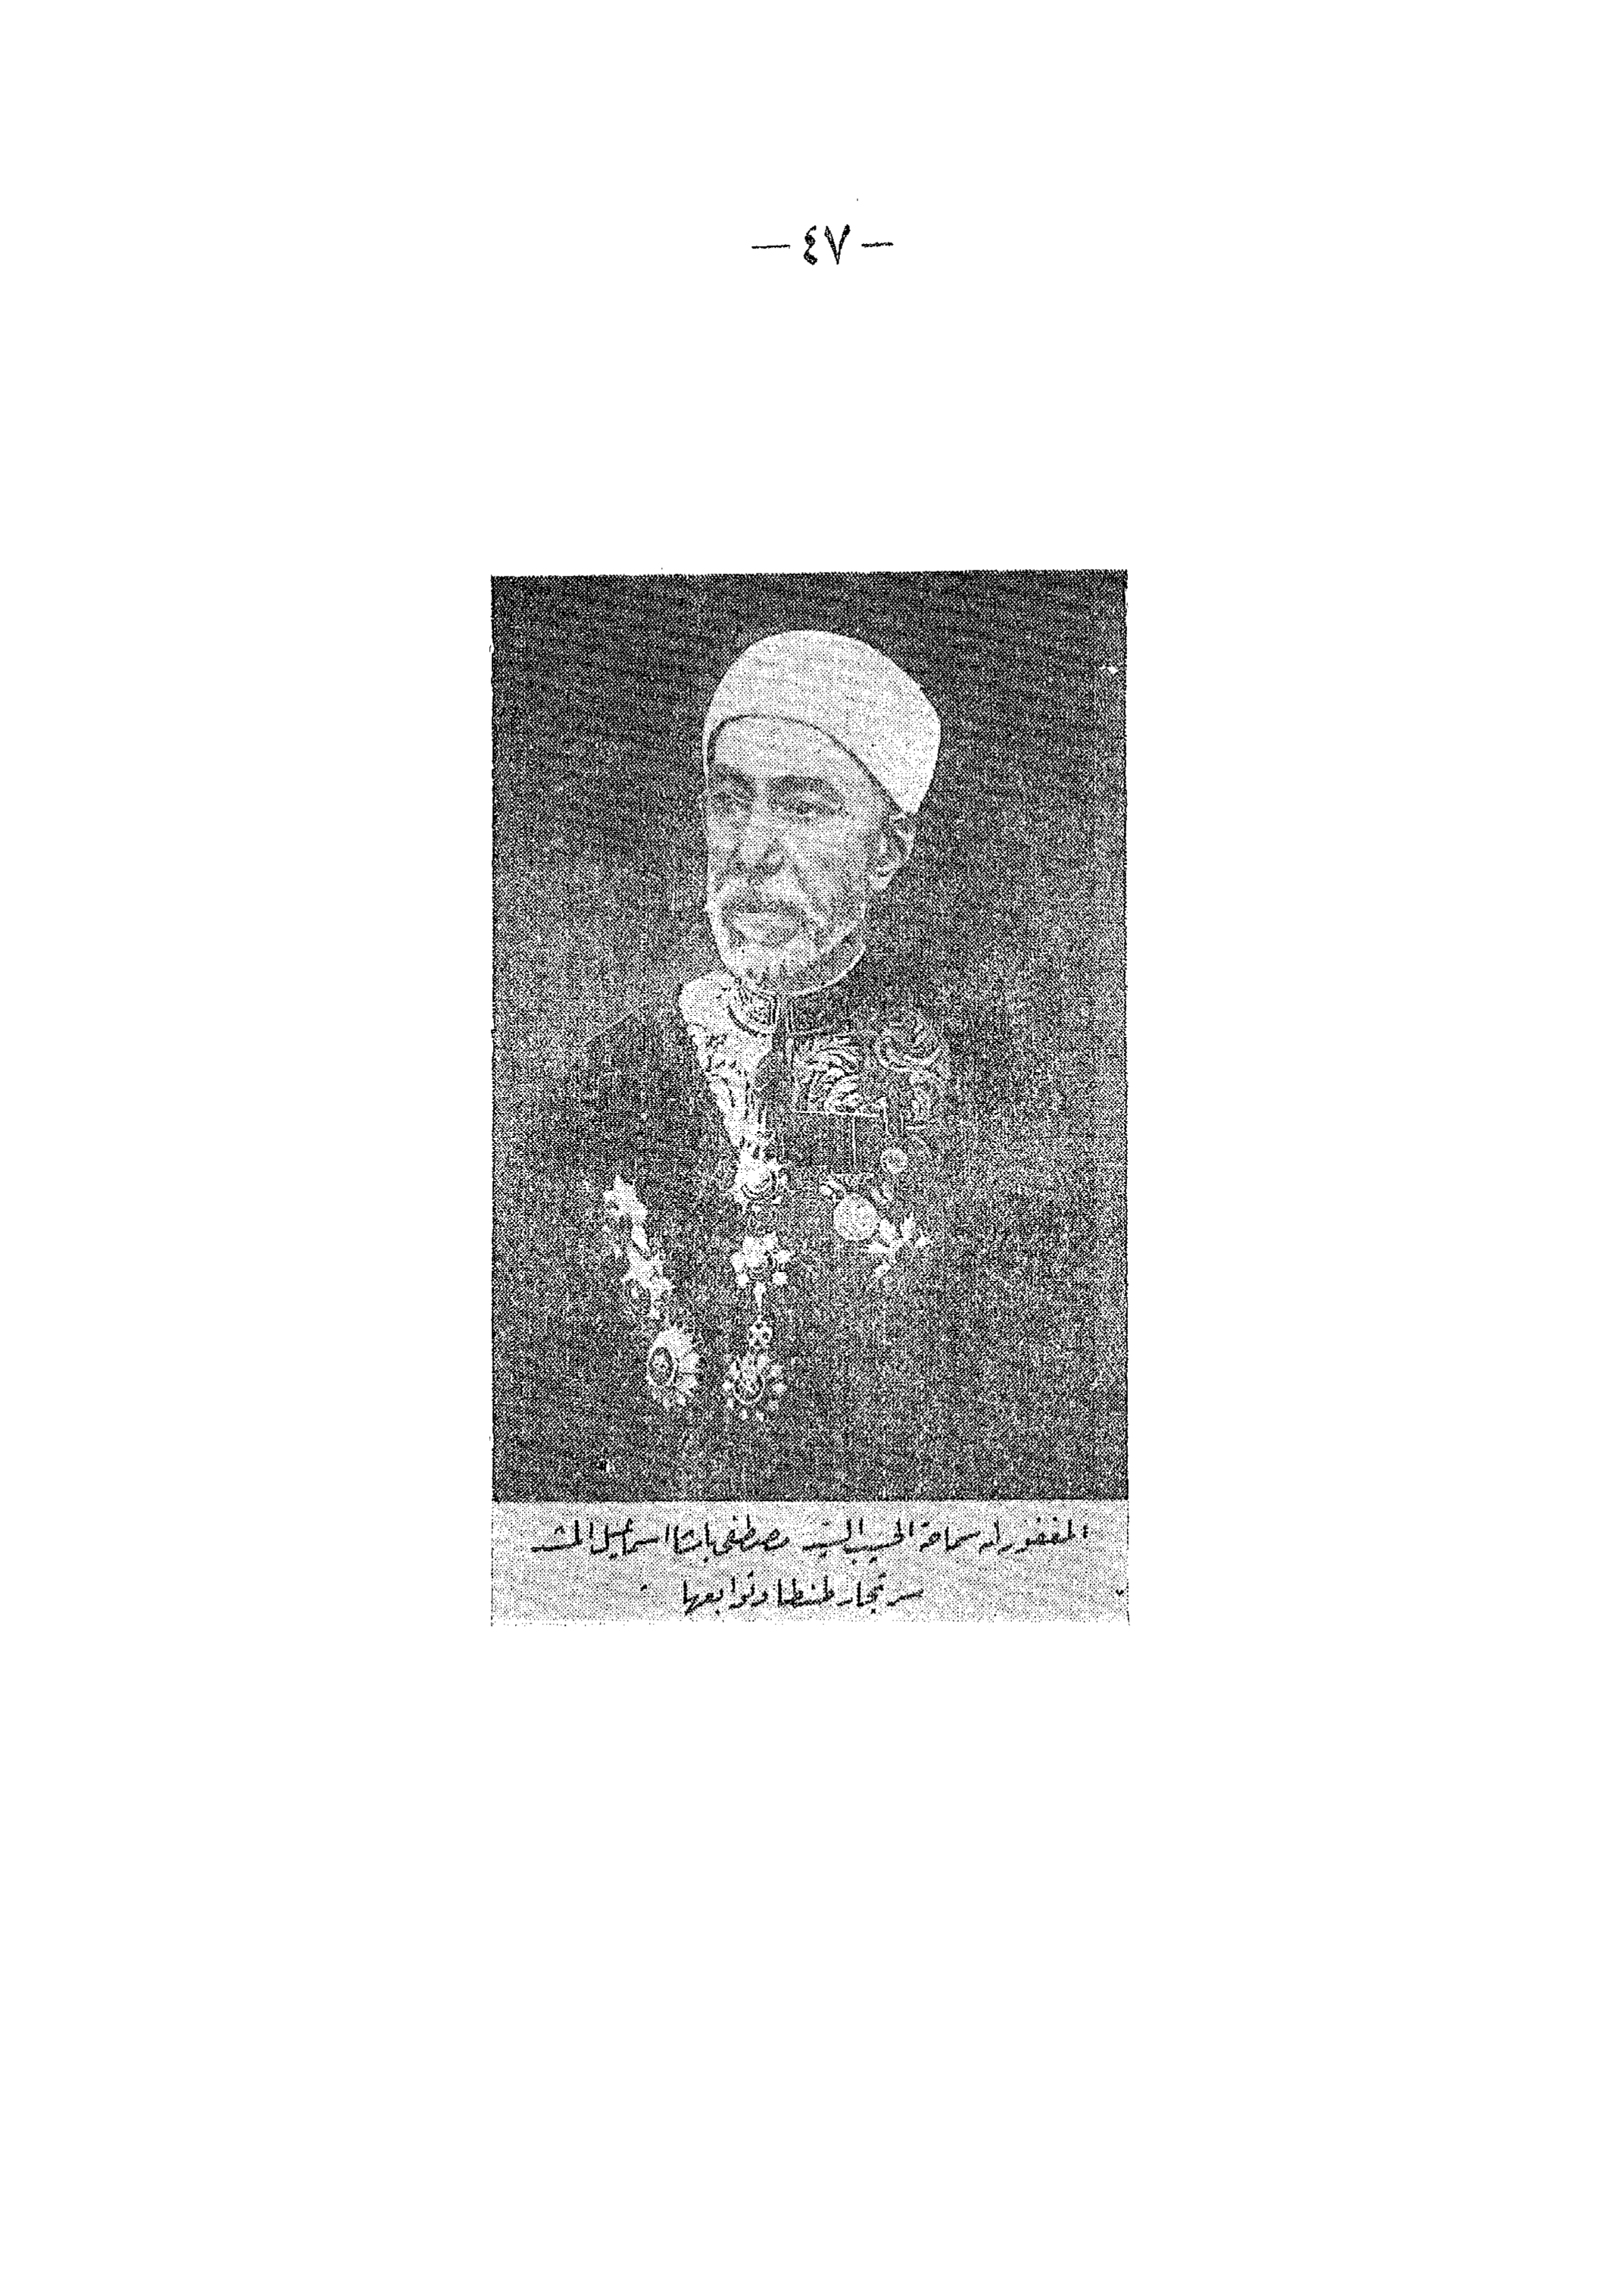 — ٤٧ —
المغفور له سماحة الحسيب السيد مصطفى باشا اسماعيل
سر تجار طنطا وتوابعها